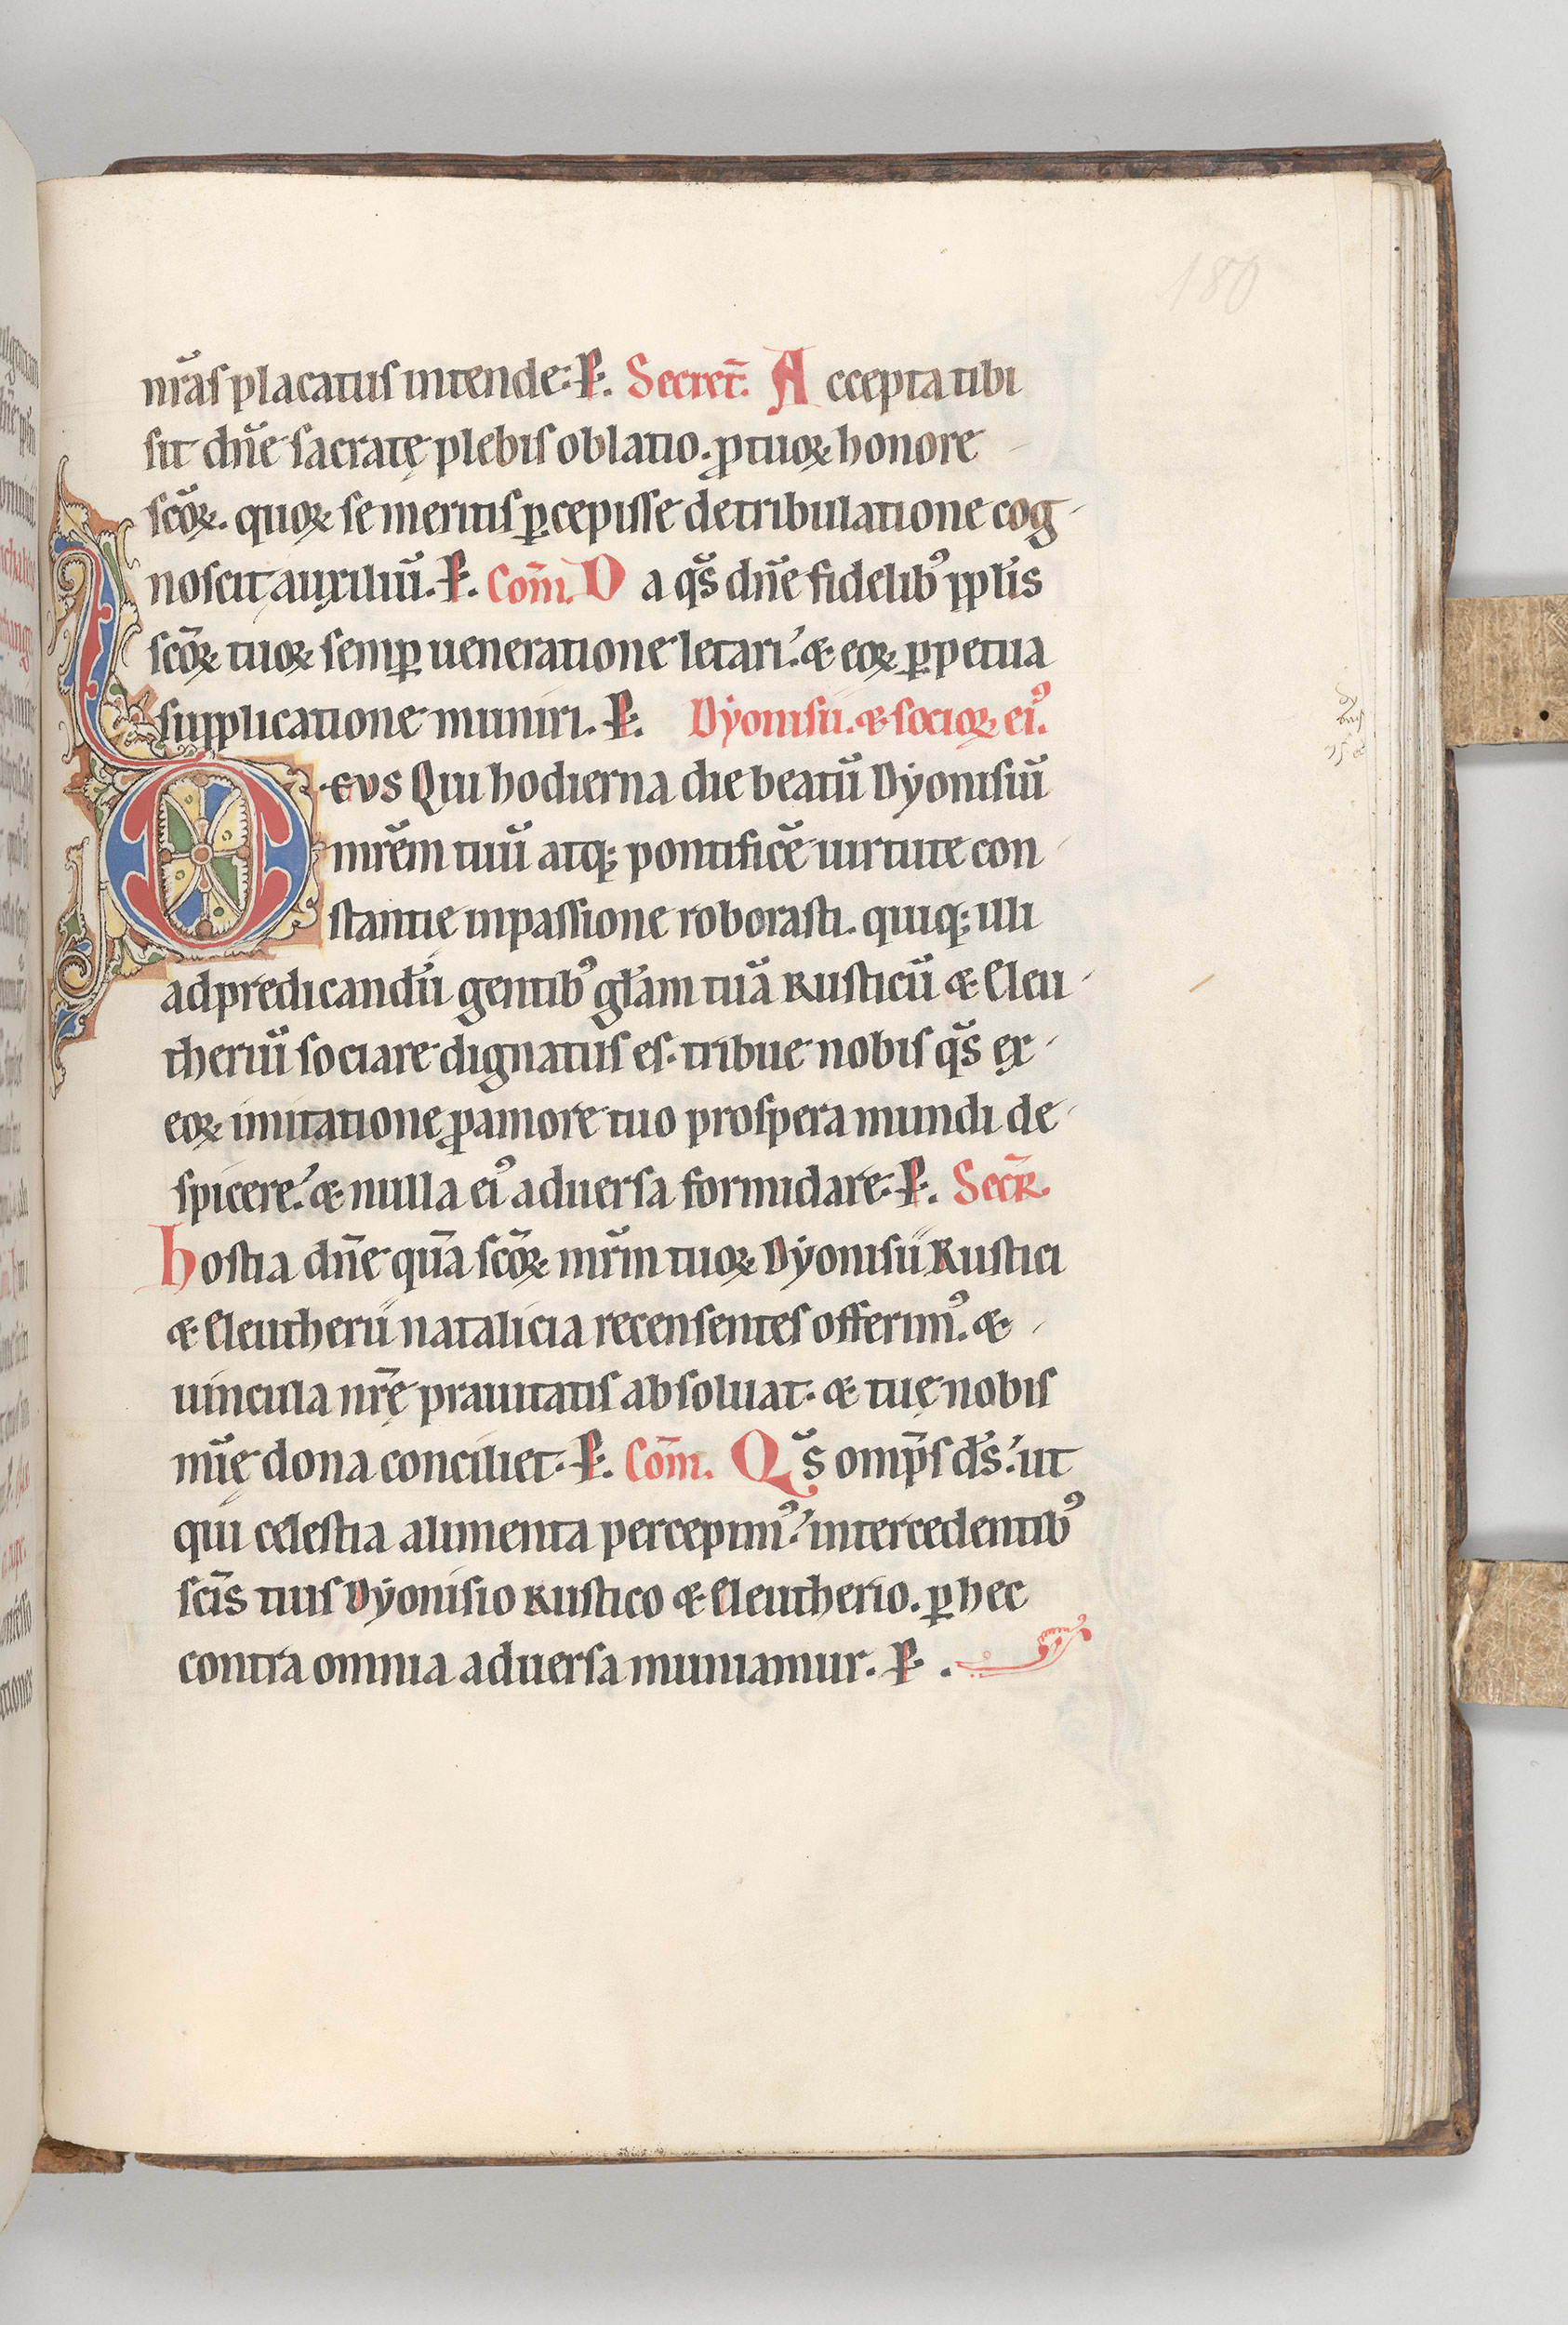 180
nr̃as placatus intende: P. Secret̃. Accepta tibi
sit dñe sacratę plebis oblatio. ꝓ tuoꝝ honore
sc̃oꝝ. quoꝝ se meritis ꝑcepisse de tribulatione cog
noscit auxiliũ. P. Com̃. Da qs̃ dñe fidelibꝰ ppl̃is
sc̃oꝝ tuoꝝ semꝑ ueneratione letari. & eoꝝ ꝑpetua
supplicatione muniri. P. Dyonisii. & socioꝝ eiꝰ.
Deus Qui hodierna die beatũ Dyonisiũ
mr̃em tuũ atq; pontificẽ uirtute con
stantię in passione roborasti. quiq; illi
ad predicandũ gentibꝰ gl̃am tuã Rusticũ & Eleu
theriũ sociare dignatus es. tribue nobis qs̃ ex
eoꝝ imitatione ꝓ amore tuo prospera mundi de
spicere. & nulla eiꝰ aduersa formidare: P. Secr̃.
hostia dñe quã sc̃oꝝ mr̃m tuoꝝ Dyonisii Rustici
& Eleutherii natalicia recensentes offerimꝰ. &
uincula nr̃ę prauitatis absoluat. & tuę nobis
mĩę dona conciliet: P. Com̃. Qs̃ omp̃s ds̃. ut
qui celestia alimenta percepimꝰ. intercedentibꝰ
sc̃is tuis Dyonisio Rustico & Eleutherio. ꝑ hec
contra omnia aduersa muniamur. P.